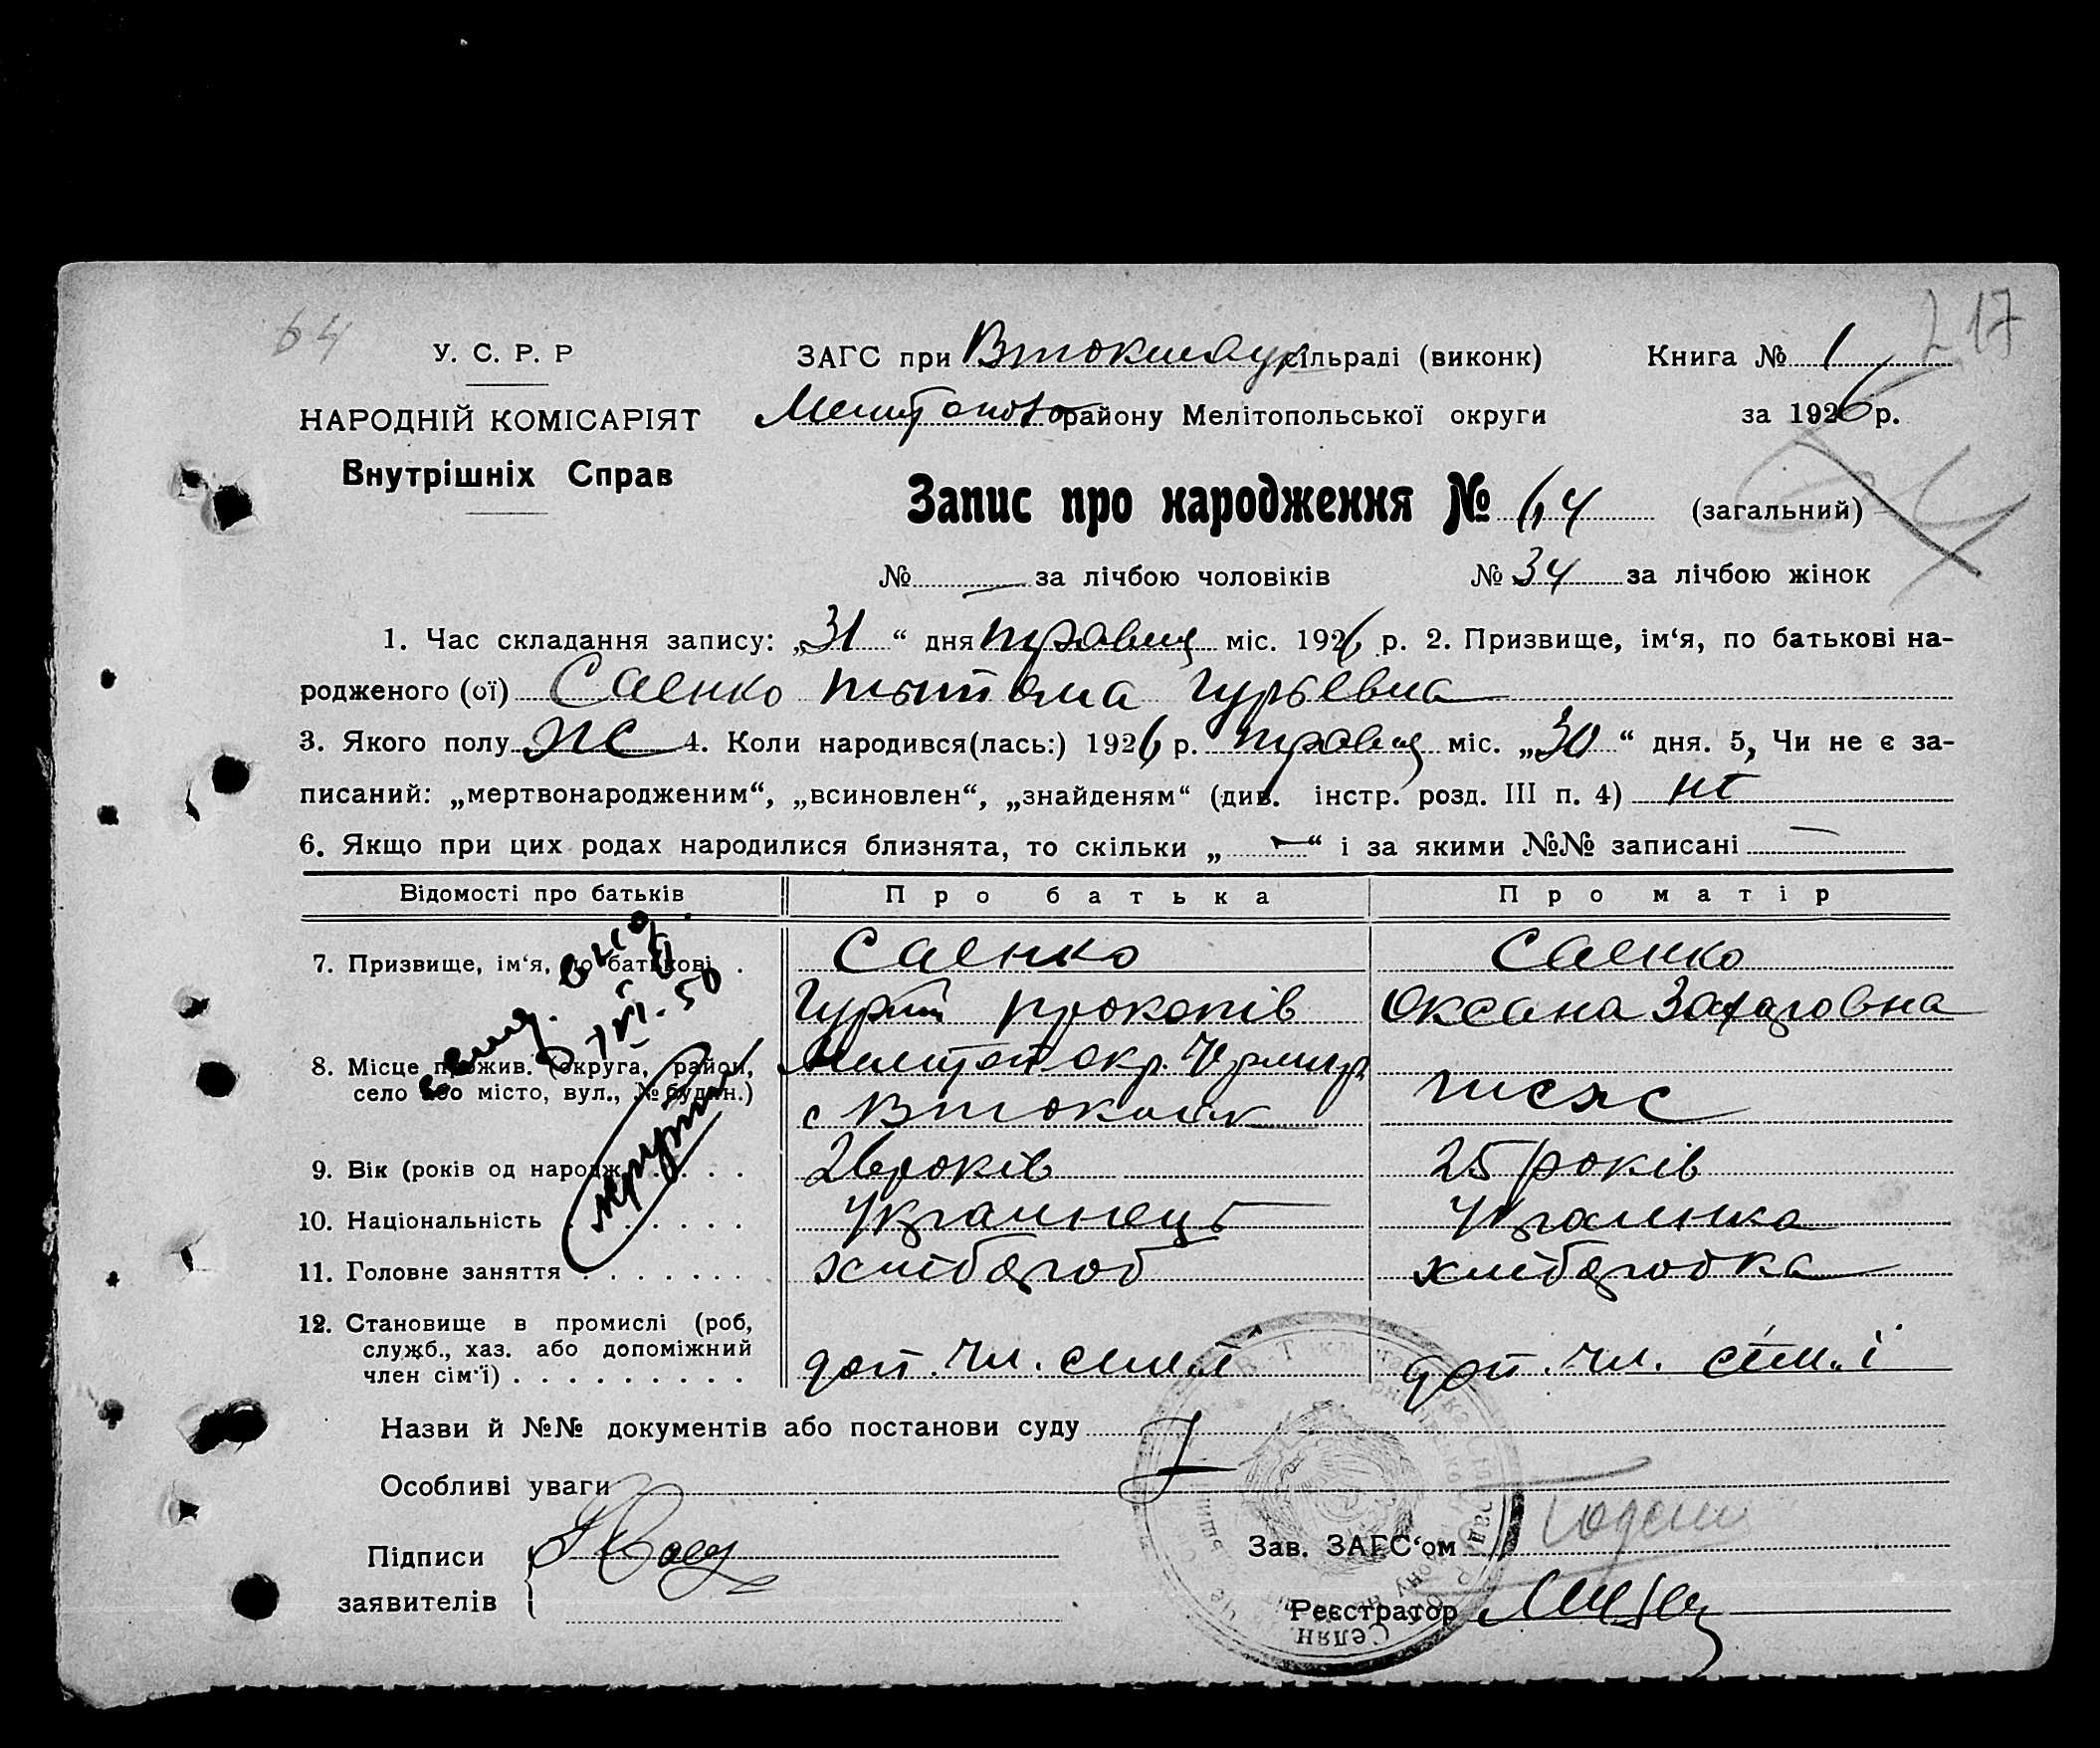 64
217
У. С. Р. Р
ЗАГС при Втокмачус сільраді (виконк)
Книга № 1
НАРОДНІЙ КОМІСАРІЯТ
району Мелітопольської округи
за 1926 р.
Внутрішніх Справ
Запис про народження № 64 (загальний)
№ — за лічбою чоловіків № 34 за лічбою жінок
1. Час складання запису: „31“ дня травня міс. 1926 р. 2. Призвище, ім‘я, по батькові на-
родженого (ої) Саенко Гурьевна
3. Якого полу ж 4. Коли народився(лась:) 1926 р. травня міс. „30“ дня. 5, Чи не є за-
писаний: „мертвонародженим“, „всиновлен“, „знайденям“ (див. інстр. розд. III п. 4) ні
6. Якщо при цих родах народилися близнята, то скільки „—“ і за якими №№ записані —
Відомості про батьків Про батька Про матір
7. Призвище, ім‘я, по батькові . Саенко Саенко
Гурій Прокопів Оксана Захаровна
8. Місце прожив. (округа, район,
село або місто, вул., № будин.)
с Втокмак теж
9. Вік (років од народж. 26 років 25 років
10. Національність Украинець Украинка
11. Головне заняття хлібороб хліборобка
12. Становище в промислі (роб,
служб., хаз. або допоміжний
член сім‘ї) доп. чл. сімї доп. чл. сім.ї
Назви й №№ документів або постанови суду
Особливі уваги
Підписи
заявителів
Зав. ЗАГС‘ом
Реєстратор